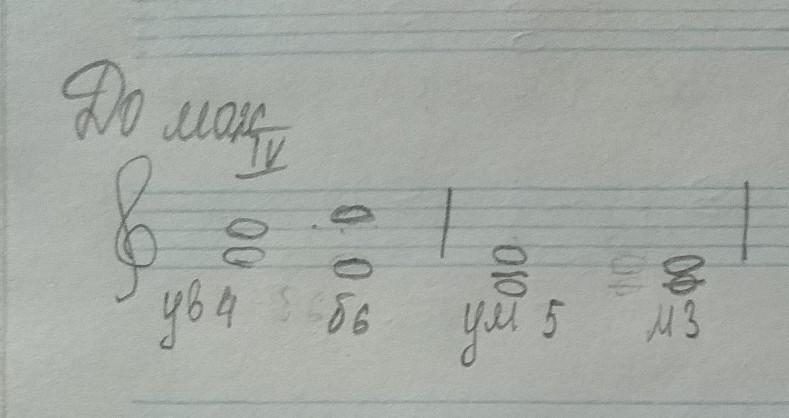 До маж
IV
ув 4 б6 ум 5 м3